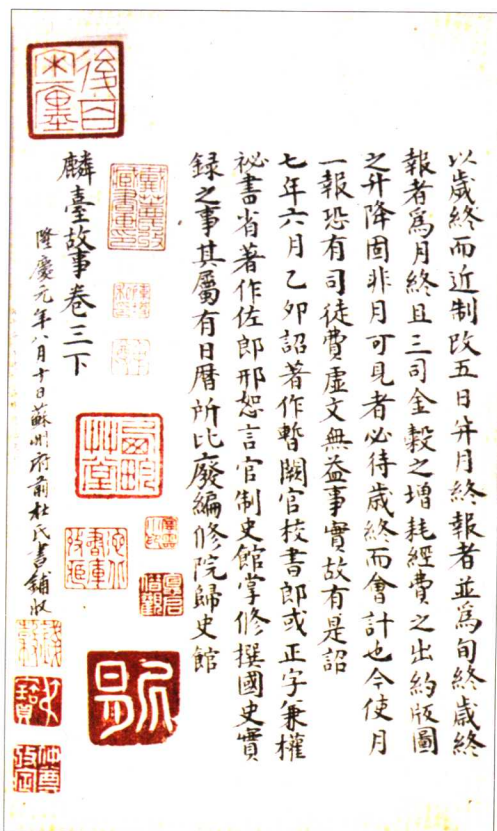 以歲終而近制改五日幷月終報者並爲旬終歲終
報者爲月終且三司金穀之增耗經費之出約版圖
之升降固非月可見者必待歲終而會計也今使月
一報恐有司徒費虛文無益事實故有是詔
七年六月乙卯詔著作暫闕官校書郎或正字兼權
祕書省著作佐郎邢恕言官制史館掌修撰國史實
錄之事其屬有日曆所比廢編修院歸史館
麟臺故事卷三下
隆慶元年八月十日蘇州府前杜氏書鋪收